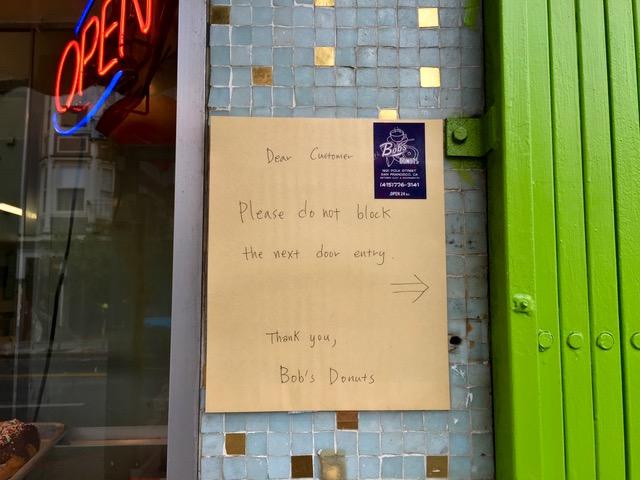 OPEN
Dear Customer
Bob's
DONUTS
1621 POLK STREET
SAN FRANCISCO, CA
(415)776-3141
OPEN 24 Hrs.
Please do not block
the next door entry.
Thank you,
Bob's Donuts